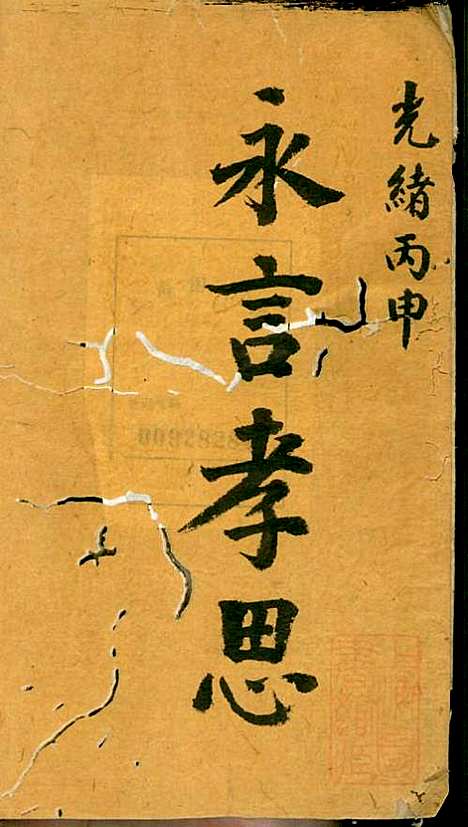 光緒丙申
永言孝思